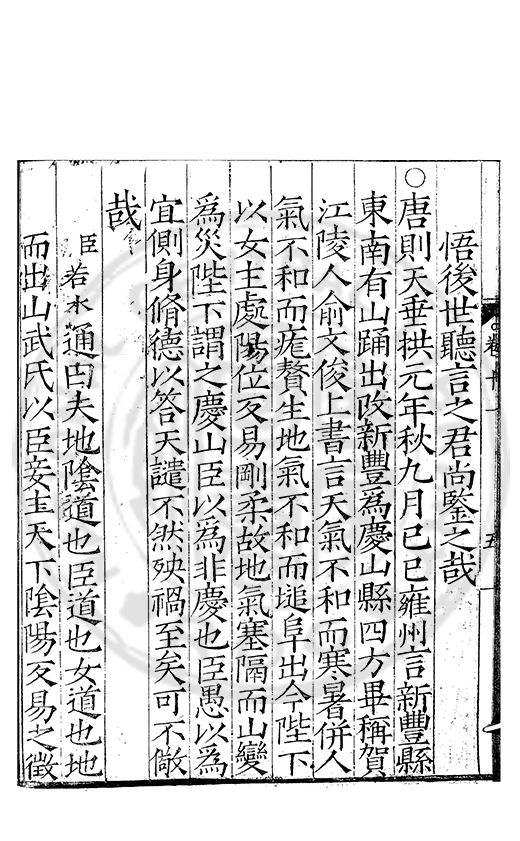 悟後世聽言之君尚鑒之哉
○唐則天垂拱元年秋九月己巳雍州言新豐縣
東南有山踊出改新豐為慶山縣四方畢稱賀
江陵人俞文俊上書言天氣不和而寒暑併人
氣不和而疣贅生地氣不和而塠阜出今陛下
以女主處陽位反易剛柔故地氣塞隔而山變
為災陛下謂之慶山臣以為非慶也臣愚以為
宜側身脩德以答天譴不然殃禍至矣可不儆
哉
臣若水通曰夫地隂道也臣道也女道也地
而出山武氏以臣妾主天下隂陽反易之徵
五